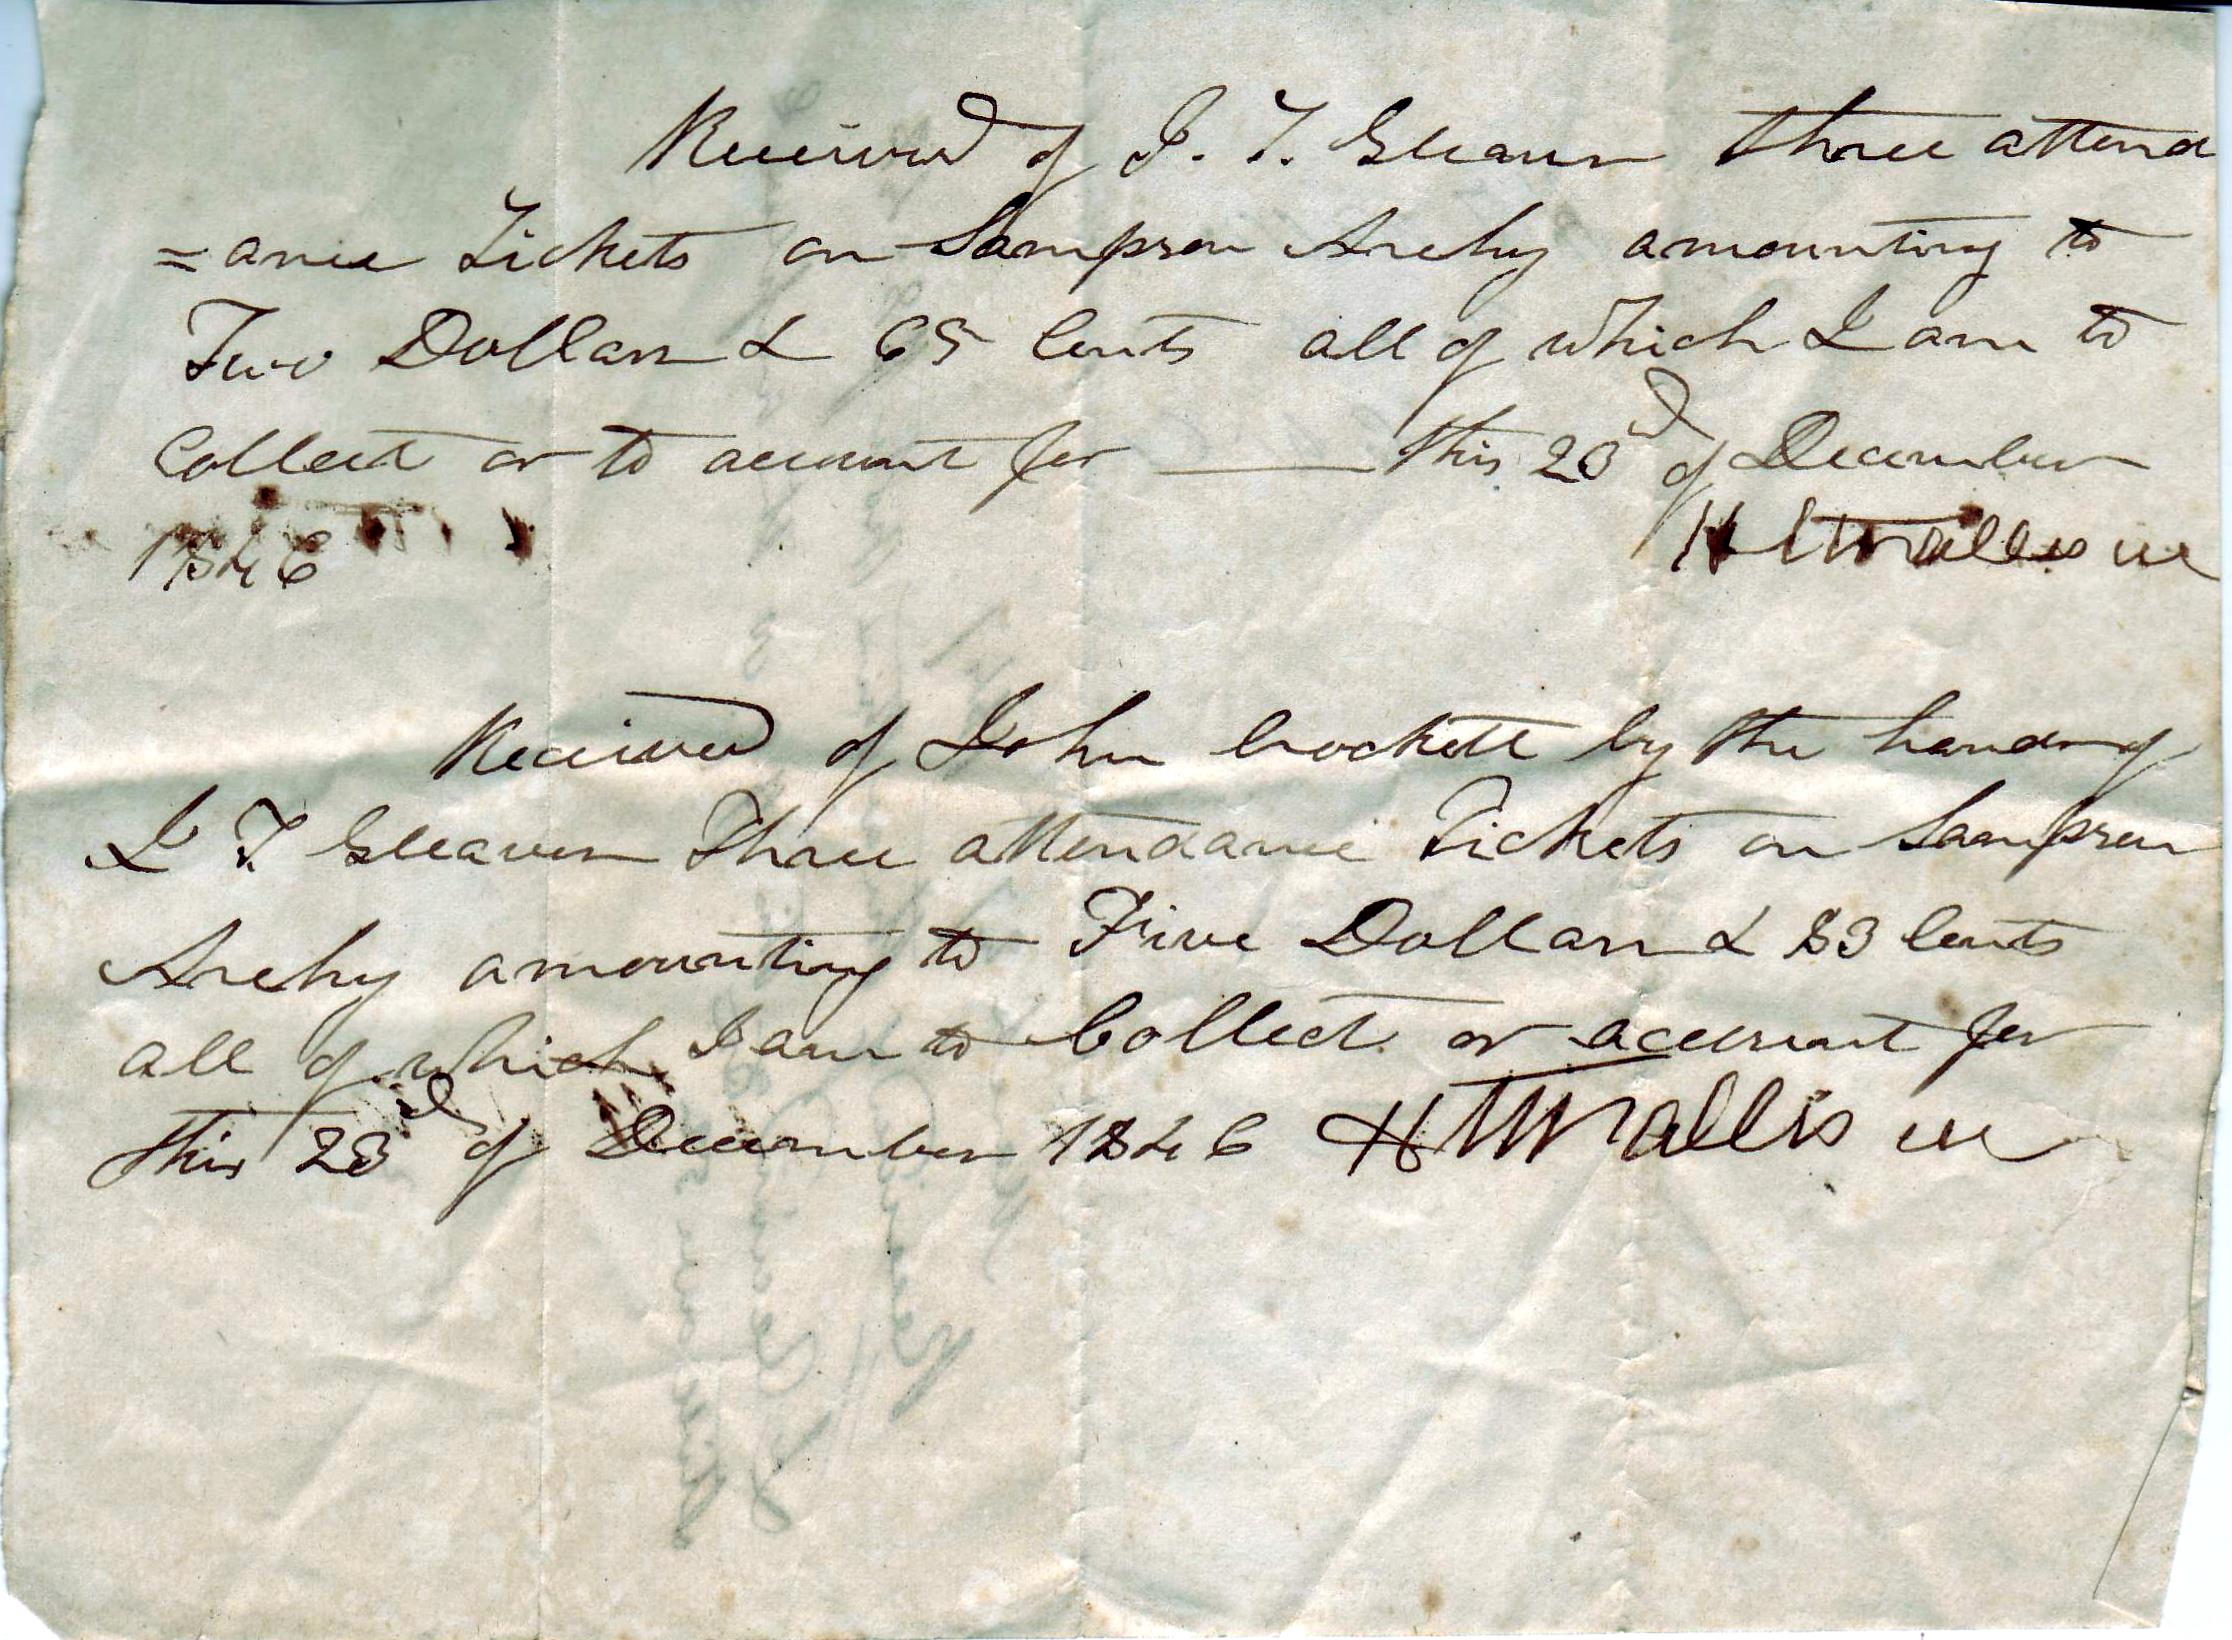 Received of I. T. Gleaves three attend
=ance Tickets on Sampson Archy amounting to
Two Dollars & 65 Cents all of which I am to
Collect or to account for —— this 23d of December
1846 H Wallis
Received of John Crockett by the hands of
I T Gleaves Three attendance Tickets on Sampson
Archy amounting to Five Dollars & 83 Cents
all of which I am to Collect or account for
this 23d of December 1846 H Wallis